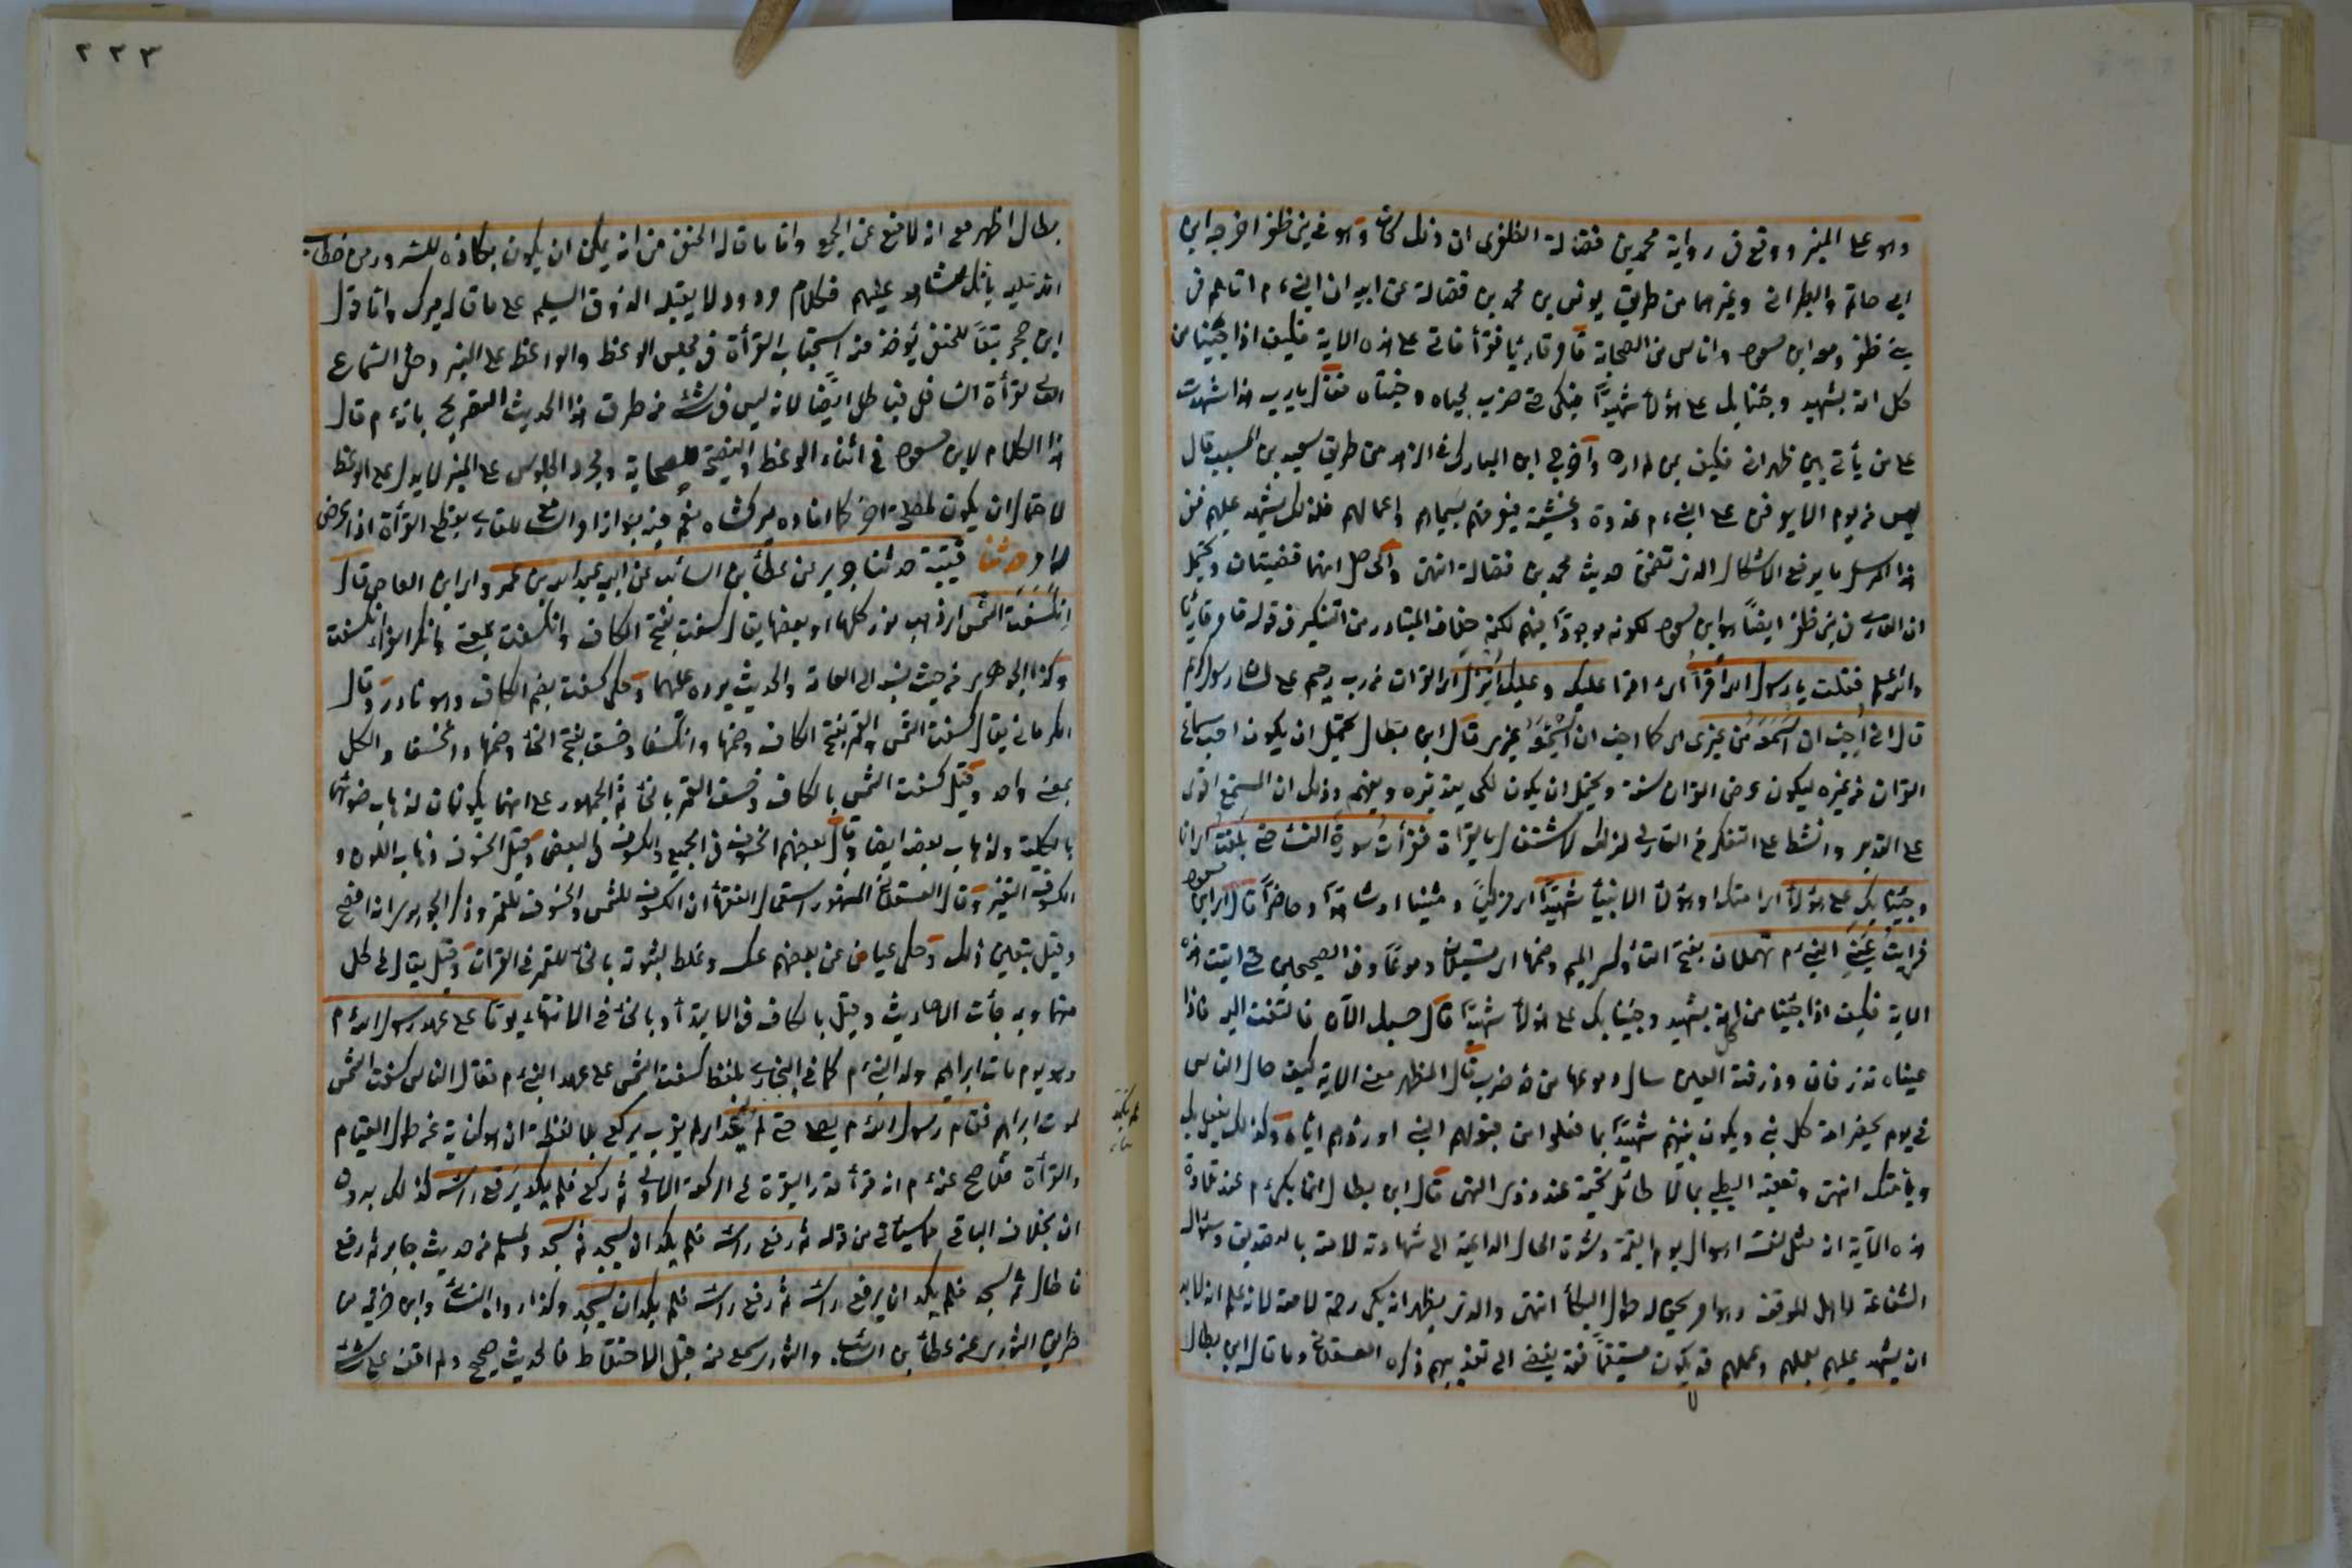 وهو على المنبر ووقع في رواية محمد بن فضالة الظفري ان ذلك كان وهو في بني ظفر اخرجه ابن
ابي حاتم والطبراني وغيرهما من طريق يونس بن محمد بن فضالة عن ابيه ان النبي ءم اتاهم في
بني ظفر ومعه ابن مسعود وناس من الصحابة فامر قارئا فقرأ فاتى على هذه الاية فكيف اذا جئنا من
كل امة بشهيد وجئنا بك على هؤلأ شهيدًا فبكى حتى ضرب لحياه وجنتاه فقال يا رب هذا شهدت
على من انا بين ظهرانيه فكيف بمن لم اره وآخرج ابن المبارك في الزهد من طريق سعيد بن المسيب قال
ليس من يوم الا يعرض على النبي ءم امته غدوة وعشية فيعرفهم بسيماهم واعمالهم فلذلك يشهد عليهم ففي
هذا المرسل ما يرفع الاشكال الذي تضمنه حديث محمد بن فضالة انتهى والحاصل انهما قضيتان ويحتمل
ان القارئ في بني ظفر ايضًا هو ابن مسعود لكونه موجودًا فيهم لكنه خلاف المتبادر من التنكير في قوله فامر قارئا
والله اعلم فقلت يا رسول الله أقرأ اي اقرأ عليك وعليك اُنزل اي القرآن من رب رحيم على لسان رسول كريم
قال اني اُحب ان اَسمعه من غيري اي كما احب ان اُسمِعه غيري قال ابن بطال يحتمل ان يكون احب سماع
القرآن من غيره ليكون عرض القرآن سنة ويحتمل ان يكون لكي يتدبره ويفهمه وذلك ان المستمع اقوى
على التدبر وانشط على التفكر من القارئ لذلك لاشتغاله بالقرآة فقرأت سورة النسأ حتى بلغت اي انا
وجئنا بك على هؤلأ اي امتك او هؤلأ الانبيأ شهيدًا اي مزكيًا ومثنيا او شاهدًا وحاضرًا قال اي ابن
مسعود
فرأيت عيني النبي ءم تهملان بفتح التأ وكسر الميم وضمها اي تسيلان دموعًا وفي الصحيحين حتى اتيت هذه
الاية فكيف اذا جئنا من كل امة بشهيد وجئنا بك على هؤلأ شهيدًا قال حسبك الآن فالتفت اليه فاذا
عيناه تذرفان وذرفت العين سال دمعها من حد ضرب قال المظهر معنى الاية كيف حال الناس
في يوم يحضر امة كل نبي ويكون نبيهم شهيدًا بما فعلوا من قبولهم النبي او ردهم اياه وكذلك يفعل بك
وبأمتك انتهى وتعقبه الطيبي بما لا طائل تحته عند ذوي النهى قال ابن بطال انما بكى ءم عند تلاوة
هذه الآية انه مثل لنفسه اهوال يوم القيمة وشدة الحال الداعية الى شهادته لامته بالتصديق وسؤاله
الشفاعة لاهل الموقف وهو امر يحق له طول البكأ انتهى والذي يظهر انه بكى رحمة لامته لانه علم انه لا بد
ان يشهد عليهم بعملهم وعملهم قد يكون مستقيمًا فقد يفضي الى تعذيبهم ذكره العسقلاني وما قال ابن بطال
٢٢٣
بطال اظهر مع انه لا منع من الجمع واما ما قاله الحنفي من انه يمكن ان يكون بكاؤه للسرور من خطاب
الله تعالى بانك شاهد عليهم فكلام مردود لا يقبله الذوق السليم على ما قال ميرك واما قول
ابن حجر تبعًا للحنفي يؤخذ منه استحباب القرأة في مجلس الوعظ والواعظ على المنبر وحل استماع
العالي لقرأة السافل فباطل ايضًا لانه ليس في شئ من طرق هذا الحديث التصريح بانه ءم قال
هذا الكلام لابن مسعود في اثناء الوعظ والنصيحة للصحابة ومجرد الجلوس على المنبر لا يدل على الوعظ
لاحتمال ان يكون لمصلحة اخرى كما افاده ميرك شاه نعم فيه جواز امر السامع للقارئ بقطع القرأة اذا عرض
له امر حدثنا قتيبة حدثنا جرير عن عطأ بن السائب عن ابيه عن عبد الله بن عمرو اي ابن العاص قال
اِنكَسَفَت الشمس اي ذهب نور كلها او بعضها يقال كسفت بفتح الكاف وانكسفت بمعنى وانكر الفراء انكسفت
وكذا الجوهري من حيث نسبه الى العامة والحديث يرده عليهما وحكي كسفت بضم الكاف وهو نادر وقال
الكرماني يقال كسفت الشمس والقمر بفتح الكاف وضمها وانكسفا وخسفا بفتح الخأ وضمها وانخسفا والكل
بمعنى واحد وقيل كسفت الشمس بالكاف وخسف القمر بالخأ ثم الجمهور على انهما يكونان لذهاب ضوئهما
بالكلية ولذهاب بعضه ايضا وقال بعضهم الخسوف في الجميع والكسوف في البعض وقيل الخسوف ذهاب اللون و
الكسوف التغير وقال العسقلاني المشهور استعمال الفقهأ ان الكسوف للشمس والخسوف للقمر وذكر الجوهري انه افصح
وقيل يتعين ذلك وحكى عياض عن بعضهم عكسه وغلط لثبوته بالخأ للقمر في القرآن وقيل يقال في كل
منهما وبه جأت الاحاديث وقيل بالكاف في الابتدأ وبالخأ في الانتهاء يومًا على عهد رسول الله ءم
وهو يوم مات ابراهيم ولد النبي ءم كما في البخاري بلفظ كسفت الشمس على عهد النبي ءم فقال الناس كسفت الشمس
لموت ابراهيم فقام رسول الله ءم يصلي حتى لم يكد اي لم يقرب يركع بلا لفظة ان هو كناية عن طول القيام
والقرأة فانه صح عنه ءم انه قرأ قدر البقرة في الركعة الاولى ثم ركع فلم يكد يرفع رأسه كذلك بدون
ان بخلاف الباقي كما سيأتي من قوله ثم رفع رأسه فلم يكد ان يسجد ثم سجد ولمسلم من حديث جابر ثم رفع
فاطال ثم سجد فلم يكد ان يرفع رأسه ثم رفع رأسه فلم يكد ان يسجد وكذا رواه النسأئي وابن خزيمة من
طريق الثوري عن عطأ بن السائب والثوري سمع منه قبل الاختلاط فالحديث صحيح ولم اقف على شئ